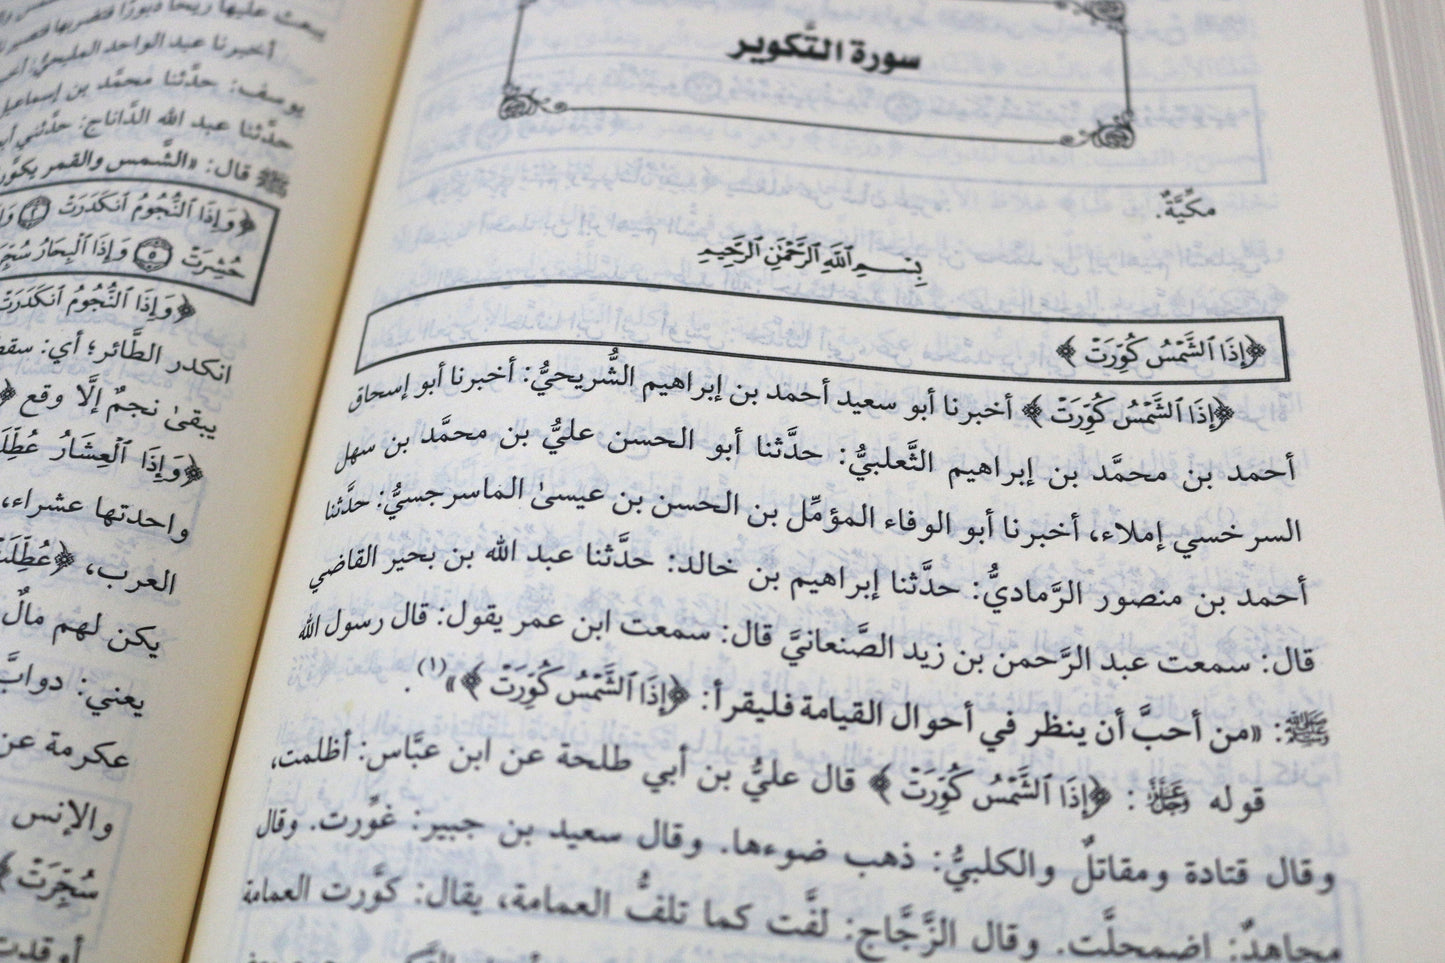 سورة التَّكوير
مكِّيَّةٌ.
بِسْمِ ٱللَّهِ ٱلرَّحْمَٰنِ ٱلرَّحِيمِ
﴿إِذَا ٱلشَّمْسُ كُوِّرَتْ ﴾
﴿إِذَا ٱلشَّمْسُ كُوِّرَتْ ﴾ أخبرنا أبو سعيد أحمد بن إبراهيم الشُّريحيُّ: أخبرنا أبو إسحاق
أحمد بن محمَّد بن إبراهيم الثَّعلبيُّ: حدَّثنا أبو الحسن عليُّ بن محمَّد بن سهل
السرخسي إملاء، أخبرنا أبو الوفاء المؤمِّل بن الحسن بن عيسىٰ الماسرجسيُّ: حدَّثنا
أحمد بن منصور الرَّماديُّ: حدَّثنا إبراهيم بن خالد: حدَّثنا عبد الله بن بحير القاضي
قال: سمعت عبد الرَّحمن بن زيد الصَّنعانيَّ قال: سمعت ابن عمر يقول: قال رسول الله
ﷺ: «من أحبَّ أن ينظر في أحوال القيامة فليقرأ: ﴿إِذَا ٱلشَّمْسُ كُوِّرَتْ ﴾»(١).
قوله ﷻ: ﴿إِذَا ٱلشَّمْسُ كُوِّرَتْ ﴾ قال عليُّ بن أبي طلحة عن ابن عبَّاس: أظلمت،
وقال قتادة ومقاتلٌ والكلبيُّ: ذهب ضوءها. وقال سعيد بن جبير: غوِّرت. وقال
مجاهدٌ: اضمحلَّت. وقال الزَّجَّاج: لفَّت كما تلفُّ العمامة، يقال: كوَّرت العمامة
يبعث عليها ريحًا دبورًا فتضربها فتصير
أخبرنا عبد الواحد المليحيُّ:
يوسف: حدَّثنا محمَّد بن إسماعيل
حدَّثنا عبد الله الدَّاناج: حدَّثني
ﷺ قال: «الشَّمس والقمر
﴿وَإِذَا ٱلنُّجُومُ ٱنكَدَرَتْ ٢
حُشِرَتْ ٥ وَإِذَا ٱلْبِحَارُ
﴿وَإِذَا ٱلنُّجُومُ ٱنكَدَرَتْ
انكدر الطَّائر؛ أي:
يبقىٰ نجمٌ إلَّا وقع
﴿وَإِذَا ٱلْعِشَارُ
واحدتها عشراء،
العرب،
يكن لهم مالٌ
يعني:
عكرمة عن
والإنس
سُجِّرَتْ ﴾
أوقدت